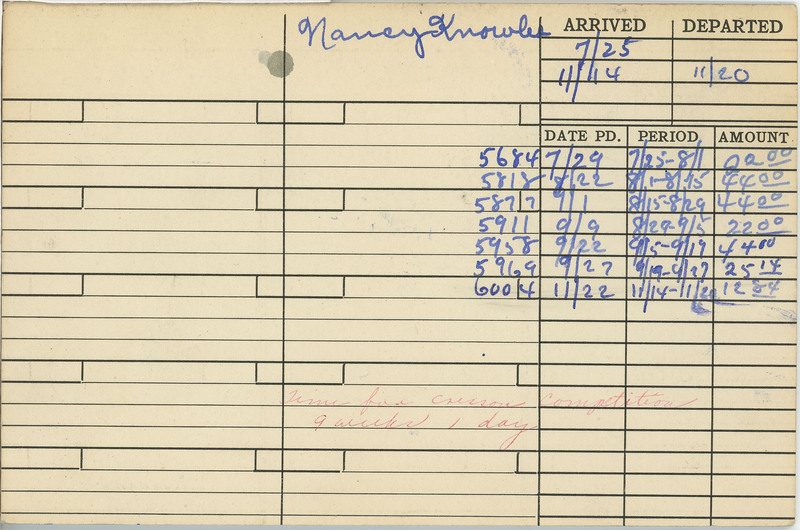 Nancy Knowles ARRIVED DEPARTED
7/25
11/14 11/20
DATE PD. PERIOD AMOUNT
5684 7/29 7/25-8/1 22.00
5818 8/22 8/1-8/15 44.00
5877 9/1 8/15-8/29 44.00
5911 9/9 8/29-9/5 22.00
5958 9/22 9/5-9/19 44.00
5969 9/27 9/19-9/27 25.14
6004 11/22 11/14-11/20 12.84
time for cresson competition
9 weeks 1 day